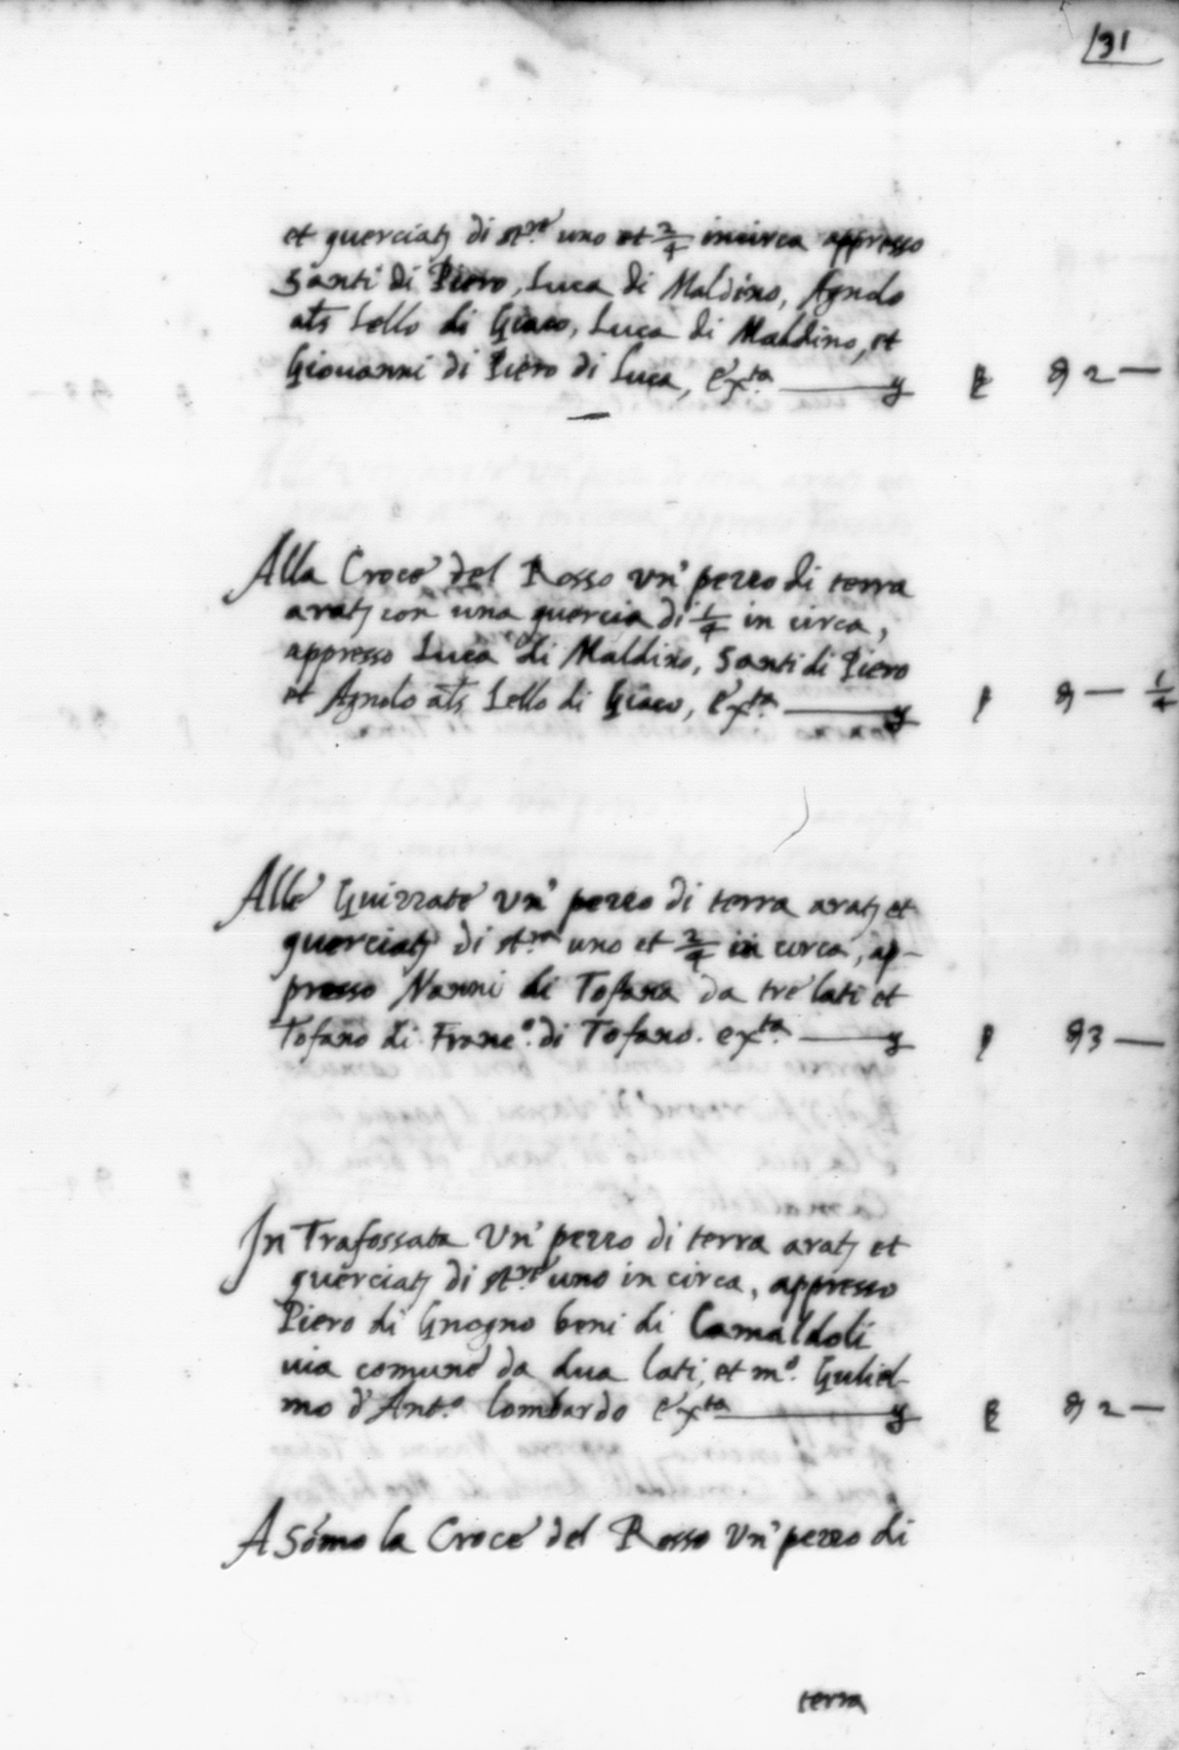 31
et querciatȝ di st.re uno et 2/4 incirca appresso
Santi di Piero, Luca di Maldino, Agnolo
als Lello di Giaco, Luca di Maldino, et
Giovanni di Piero di Luca, ex.ta — 2 —
Alla Croce del Rosso un' pezzo di terra
aratȝ con una quercia di 1/4 in circa,
appresso Luca di Maldino, Santi di Piero
et Agnolo als Lello di Giaco, ex.ta — 1/4
Alle Guizzate Un' pezzo di terra aratȝ et
querciatȝ di st.ra uno et 2/4 in circa, ap-
presso Nanni di Tofana da tre lati et
Tofano di Franc.o di Tofano. ex.ta — 3 —
In Trafossata Un' pezzo di terra aratȝ et
querciatȝ di st.re uno in circa, appresso
Piero di Gnogno beni di Camaldoli
via comune da dua lati, et m.o Guliel-
mo d'Ant.o lombardo ex.ta — 2 —
A Sómo la Croce del Rosso Un' pezzo di
terra